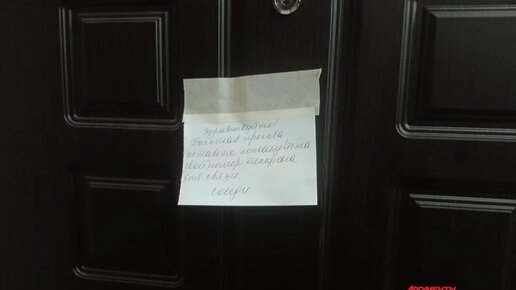 Здравствуйте!
Большая просьба,
оставьте пожалуйста
свой номер телефона
для связи.
Соседи.
АРГУМЕНТЫ